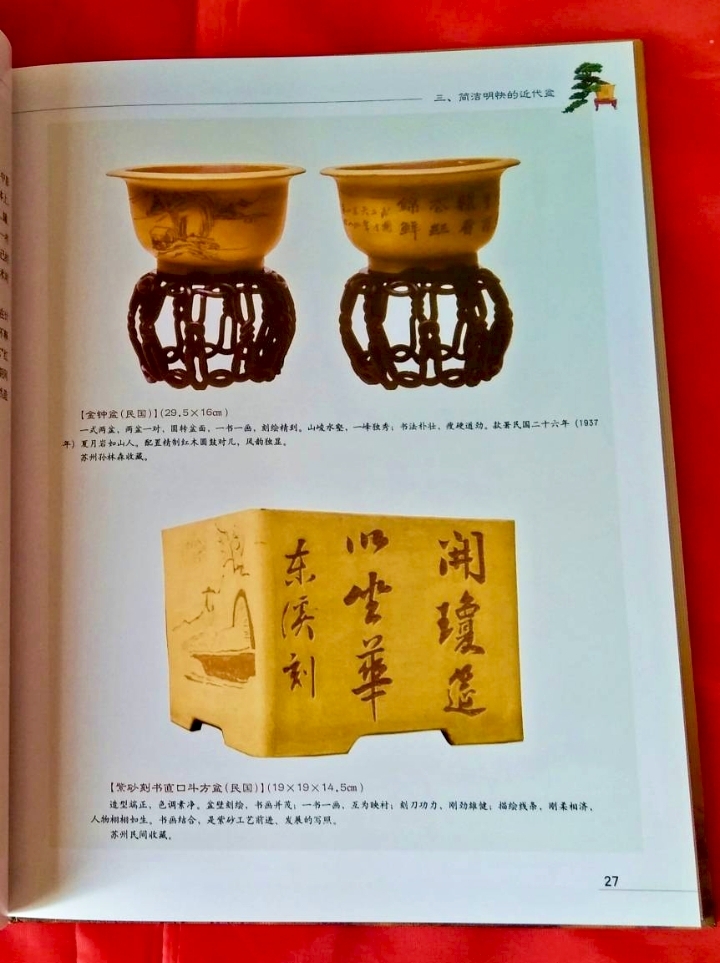 三、简洁明快的近代盆
【金钟盆(民国)】(29.5×16㎝)
一式两盆，两盆一对，圆转盆面，一书一画，刻绘精到。山峻水壑，一峰独秀；书法朴壮，瘦硬遒劲。款署民国二十六年（1937
年）夏月岩如山人。配置精制红木圆鼓对几，风韵独显。
苏州孙林森收藏。
開瓊筵
以坐華
东溪刻
【紫砂刻书直口斗方盆(民国)】(19×19×14.5㎝)
造型端正，色调素净。盆壁刻绘，书画并茂；一书一画，互为映衬；刻刀功力，刚劲雄健；描绘线条，刚柔相济，
人物栩栩如生。书画结合，是紫砂工艺前进、发展的写照。
苏州民间收藏。
27